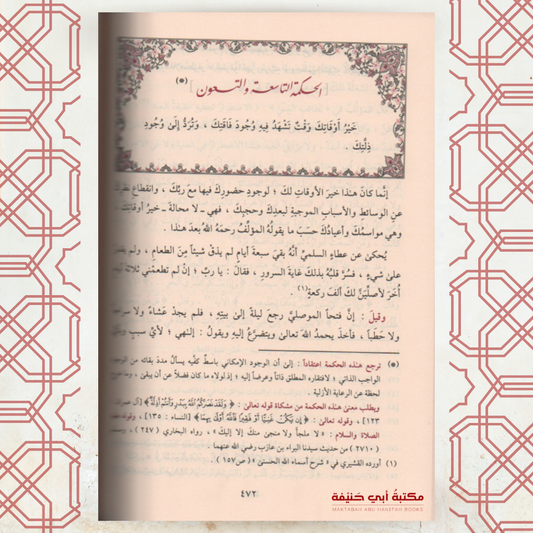 [الحكمة التاسعة والتسعون] (*)
خَيْرُ أَوْقَاتِكَ وَقْتٌ تَشْهَدُ فِيهِ وُجُودَ فَاقَتِكَ ، وَتُرَدُّ إِلَىٰ وُجُودِ
ذِلَّتِكَ .
إنَّما كانَ هـٰذا خيرَ الأوقاتِ لكَ ؛ لوجودِ حضورِكَ فيها معَ ربِّكَ ، وانقطاعِ نظرِكَ
عنِ الوسائطِ والأسبابِ الموجبةِ لبعدِكَ وحجبِكَ ، فهيَ ـ لا محالةَ ـ خيرُ أوقاتِكَ
وهي مواسمُكَ وأعيادُكَ حسَبَ ما يقولُهُ المؤلِّفُ رحمَهُ اللهُ بعدَ هـٰذا .
يُحكىٰ عن عطاءٍ السلميِّ أنَّهُ بقيَ سبعةَ أيَّامٍ لم يذقْ شيئاً مِنَ الطعامِ ، ولم يقدرْ
علىٰ شيءٍ ، فسُرَّ قلبُهُ بذلكَ غايةَ السرورِ ، فقالَ : يا ربِّ ؛ إنْ لم تطعمْني ثلاثةَ أيامٍ
أُخَرَ لأُصلِّيَنَّ لكَ ألفَ ركعةٍ(١) .
وقيلَ : إنَّ فتحاً الموصليَّ رجعَ ليلةً إلىٰ بيتِهِ ، فلم يجدْ عَشاءً ولا سراجاً
ولا حَطَباً ، فأخذَ يحمدُ اللهَ تعالىٰ ويتضرَّعُ إليهِ ويقولُ : إلـٰهي ؛ لأيِّ سببٍ
(*) ترجع هذه الحكمة اعتقاداً : إلىٰ أن الوجود الإمكاني باسطٌ كفَّيه يسأل مددَ بقائه من الوجود
الواجب الذاتي ؛ لافتقاره المطلق ذاتاً وعرضاً إليه ؛ إذ لولاه ما كان فضلاً عن أن يبقىٰ ، وما
لحظة عن الرعاية الأزلية .
ويطلب معنىٰ هذه الحكمة من مشكاة قوله تعالىٰ : ﴿ وَلَقَدْ نَصَرَكُمُ اللَّهُ بِبَدْرٍ وَأَنتُمْ أَذِلَّةٌ ﴾ [آل عمران :
١٢٣] ، وقوله تعالىٰ : ﴿ إِن يَكُنْ غَنِيًّا أَوْ فَقِيرًا فَاللَّهُ أَوْلَىٰ بِهِمَا ﴾ [النساء : ١٣٥] ، وقوله عليه
الصلاة والسلام : « لا ملجأ ولا منجىٰ منكَ إلا إليك » ، رواه البخاري ( ٢٤٧ ) ،
( ٢٧١٠ ) من حديث سيدنا البراء بن عازب رضي الله عنهما .
(١) أورده القشيري في « شرح أسماء الله الحسنىٰ » ( ص١٥٧ ) .
٤٧٢
مكتبة أبي حنيفة
MAKTABAH ABU HANEFAH BOOKS